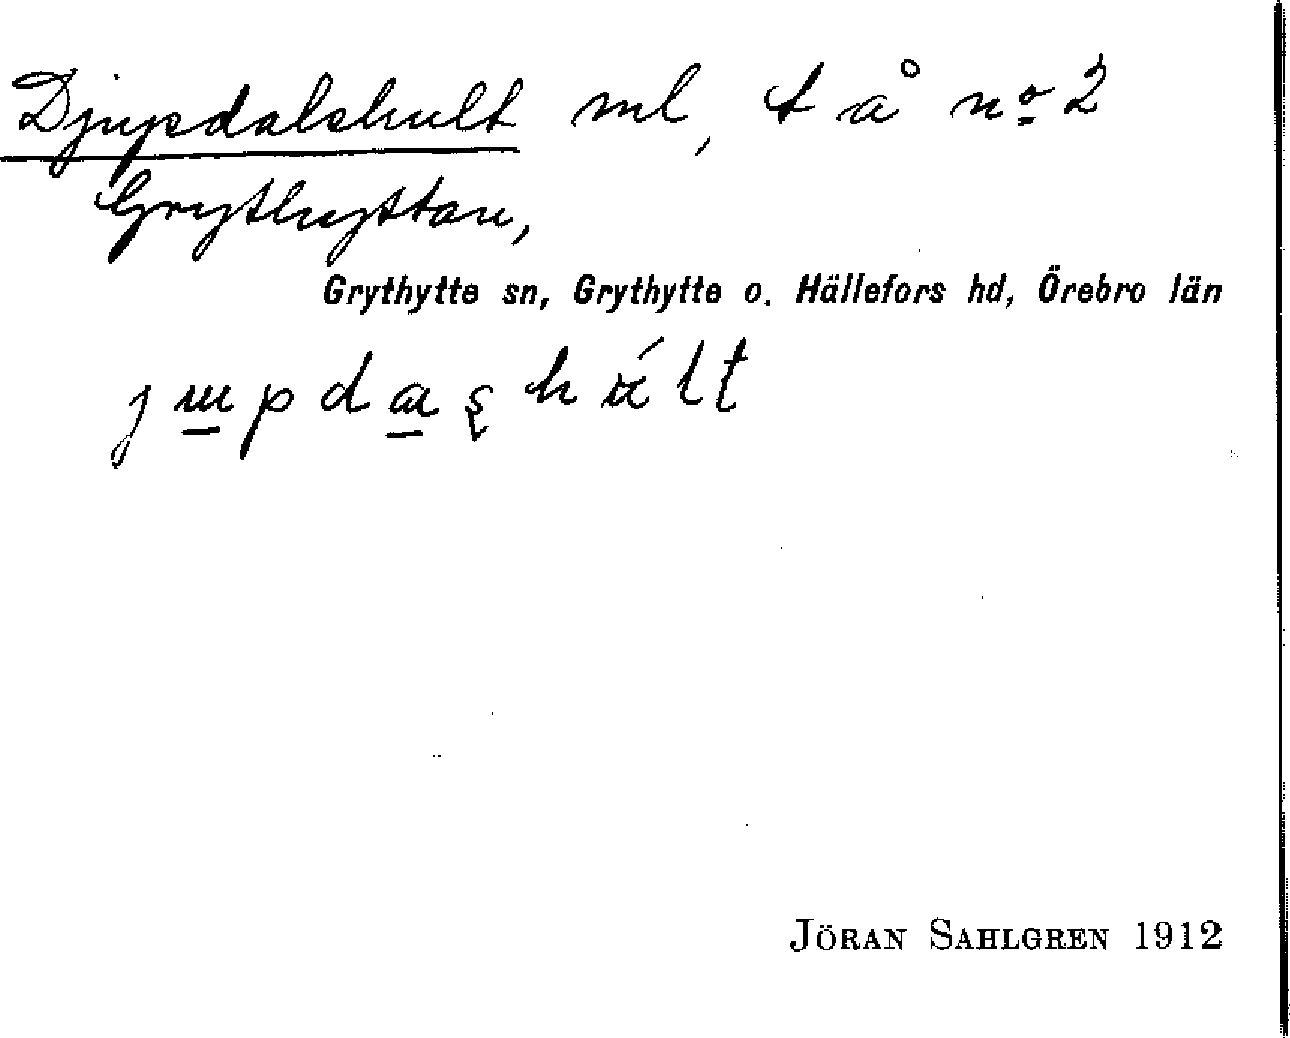 Djupdalshult ml, t å nº 2
Grythyttan,
Grythytte sn, Grythytte o. Hällefors hd, Örebro län
JÖRAN SAHLGREN 1912